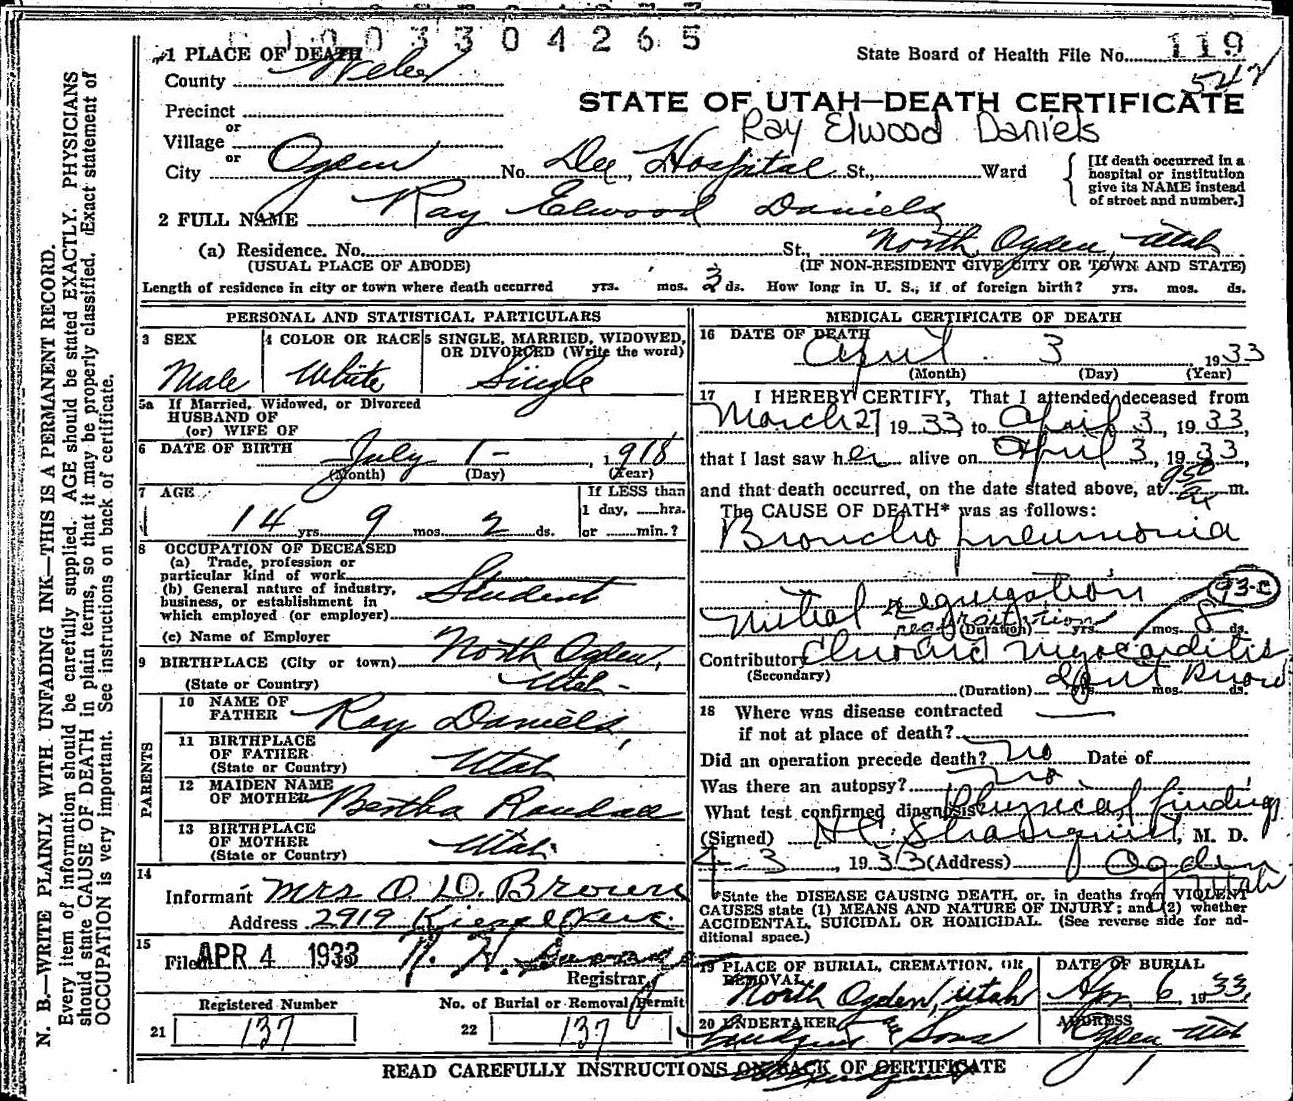 1003304265
1 PLACE OF DEATH
State Board of Health File No. 119
County Weber
542
STATE OF UTAH—DEATH CERTIFICATE
Precinct
Ray Elwood Daniels
or
Village
or
City Ogden No. Dee Hospital St., Ward
[If death occurred in a hospital or institution give its NAME instead of street and number.]
2 FULL NAME Ray Elwood Daniels
(a) Residence. No. St., North Ogden, Utah
(USUAL PLACE OF ABODE) (IF NON-RESIDENT GIVE CITY OR TOWN AND STATE)
Length of residence in city or town where death occurred yrs. mos. 3 ds. How long in U. S., if of foreign birth? yrs. mos. ds.
PERSONAL AND STATISTICAL PARTICULARS
3 SEX
Male
4 COLOR OR RACE
White
5 SINGLE, MARRIED, WIDOWED, OR DIVORCED (Write the word)
Single
5a If Married, Widowed, or Divorced
HUSBAND OF
(or) WIFE OF
6 DATE OF BIRTH July 1- , 1918
(Month) (Day) (Year)
7 AGE
14 yrs. 9 mos. 2 ds.
If LESS than
1 day, hrs.
or min.?
8 OCCUPATION OF DECEASED
(a) Trade, profession or
particular kind of work
(b) General nature of industry,
business, or establishment in
which employed (or employer)
Student
(c) Name of Employer
9 BIRTHPLACE (City or town) North Ogden,
(State or Country) Utah-
PARENTS
10 NAME OF
FATHER Ray Daniels,
11 BIRTHPLACE
OF FATHER
(State or Country) Utah
12 MAIDEN NAME
OF MOTHER Bertha Randall
13 BIRTHPLACE
OF MOTHER
(State or Country) Utah.
14
Informant Mrs O. D. Brown
Address 2919 Kiesel Ave.
15
Filed APR 4 1933
Registrar
Registered Number
21 137
No. of Burial or Removal Permit
22 137
MEDICAL CERTIFICATE OF DEATH
16 DATE OF DEATH
April 3 1933
(Month) (Day) (Year)
17 I HEREBY CERTIFY, That I attended deceased from
March 27 1933, to April 3, 1933,
that I last saw her alive on April 3, 1933,
and that death occurred, on the date stated above, at 950 m.
The CAUSE OF DEATH* was as follows:
Broncho pneumonia
93-c
Mitral regurgitation
(Duration) yrs. mos. 8 ds.
Contributory Chronic Myocarditis
(Secondary)
(Duration) yrs. mos. ds. don't know
18 Where was disease contracted
if not at place of death?
Did an operation precede death? no Date of
Was there an autopsy? no
What test confirmed diagnosis? Physical findings
(Signed) , M. D.
4-3 1933 (Address) Ogden Utah
*State the DISEASE CAUSING DEATH, or, in deaths from VIOLENT
CAUSES state (1) MEANS AND NATURE OF INJURY; and (2) whether
ACCIDENTAL, SUICIDAL OR HOMICIDAL. (See reverse side for ad-
ditional space.)
19 PLACE OF BURIAL, CREMATION, OR
REMOVAL
North Ogden, Utah
DATE OF BURIAL
Apr 6, 1933
20 UNDERTAKER
& Sons
ADDRESS
Ogden Utah
READ CAREFULLY INSTRUCTIONS ON BACK OF CERTIFICATE
N. B.—WRITE PLAINLY WITH UNFADING INK—THIS IS A PERMANENT RECORD.
Every item of information should be carefully supplied. AGE should be stated EXACTLY. PHYSICIANS
should state CAUSE OF DEATH in plain terms, so that it may be properly classified. Exact statement of
OCCUPATION is very important. See instructions on back of certificate.